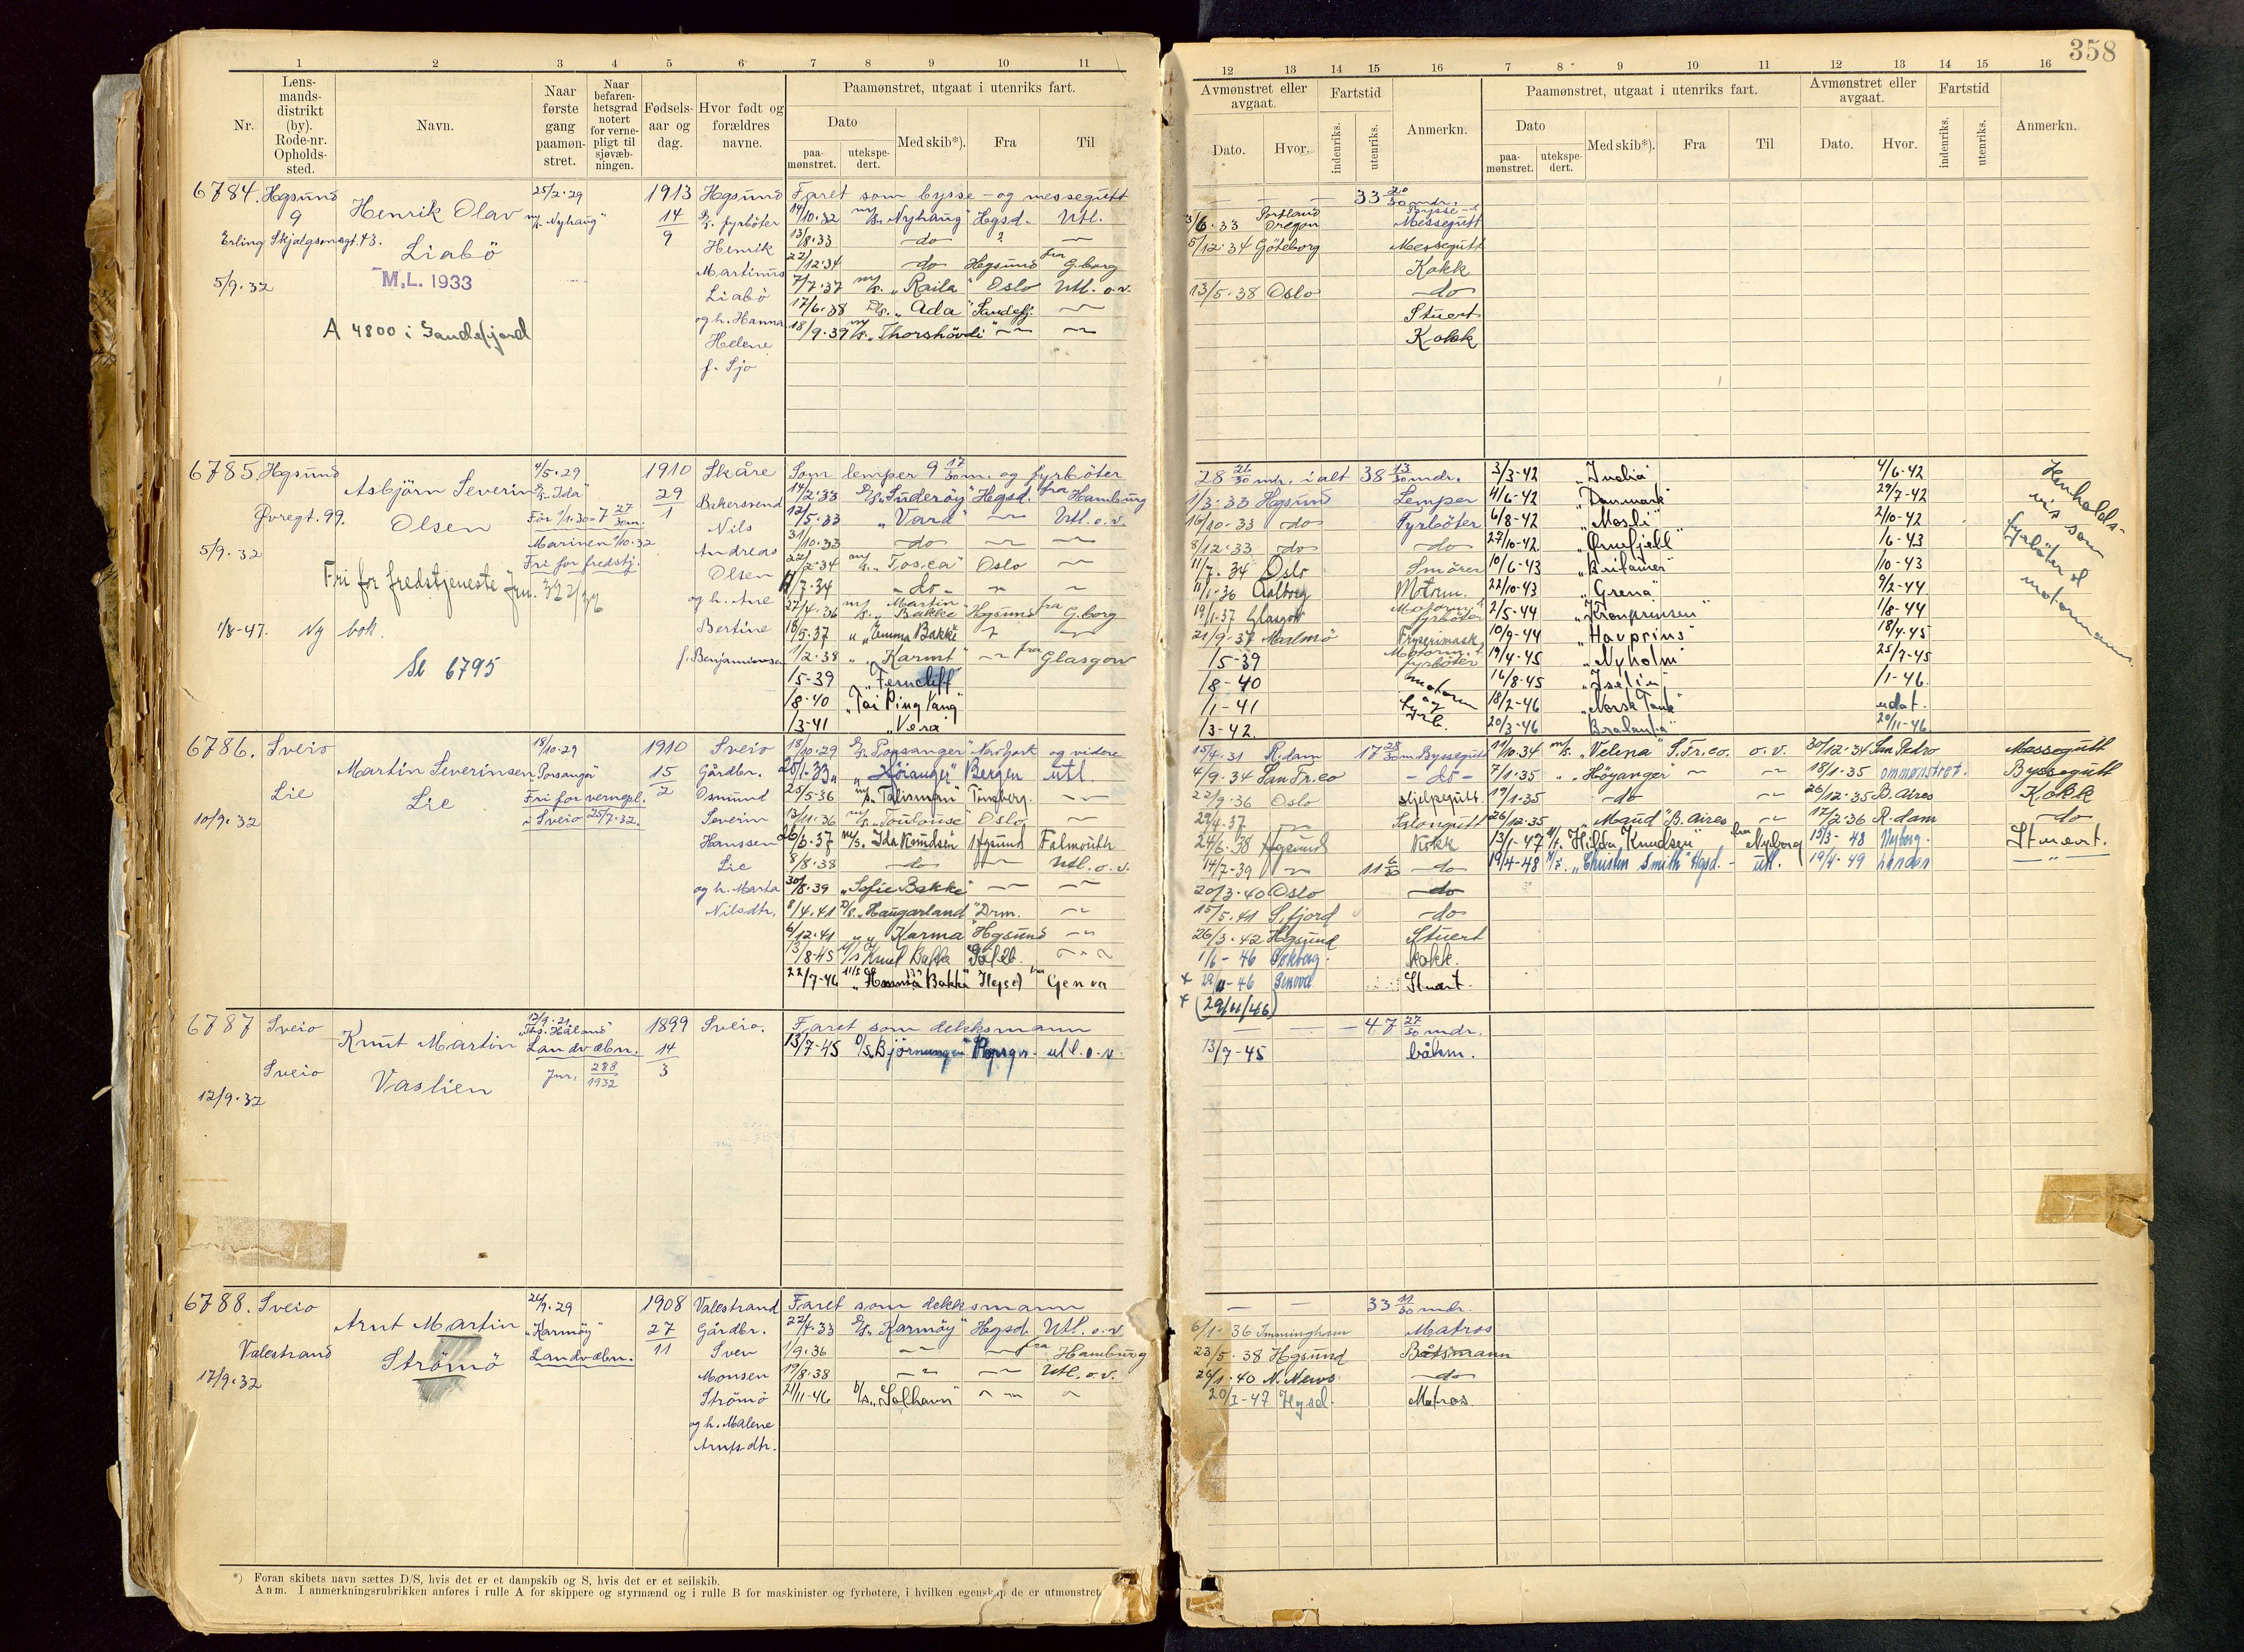 358
1 2 3 4 5 6 7 8 9 10 11
12 13 14 15 16 7 8 9 10 11 12 13 14 15 16
Nr.
Lens-
mands-
distrikt
(by).
Rode-nr.
Opholds-
sted.
Navn.
Naar
første
gang
paamøn-
stret.
Naar
befaren-
hetsgrad
notert
for verne-
pligt til
sjøvæb-
ningen.
Fødsels-
aar og
dag.
Hvor født og
forældres
navne.
Paamønstret, utgaat i utenriks fart.
Dato
paa-
mønstret.
utekspe-
dert.
Med skib*).
Fra
Til
Avmønstret eller
avgaat.
Dato.
Hvor.
Fartstid
indenriks.
utenriks.
Anmerkn.
Paamønstret, utgaat i utenriks fart.
Dato
paa-
mønstret.
utekspe-
dert.
Med skib*).
Fra
Til
Avmønstret eller
avgaat.
Dato.
Hvor.
Fartstid
indenriks.
utenriks.
Anmerkn.
6784. Hgsund
9
Erling Skjalgsonsgt. 43.
5/9.32
Henrik Olav
Liabö
M.L. 1933
A 4800 i Sandefjord
25/2.29
m/s. "Nyhaug"
1913
14
9
Hgsund
fyrböter
Henrik
Martinus
Liabö
og h. Hanna
Helene
f. Sjo
Faret som bysse- og messegutt — — — 33 20/30 mdr.
14/10.32 m/s. "Nyhaug" Hgsd. Utl. 3/6.33 Portland Oregon Messegutt
13/8.33 do ? — 5/12.34 Göteborg Messegutt
22/12.34 do Hgsund fra G.borg Kokk
7/7.37 m/s. "Raila" Oslo Utl. o.v. 13/5.38 Oslo do
17/6.38 D/s. "Ada" Sandefj. — Stuert
18/9.39 m/s. "Thorshövdi" — — Kokk
6785. Hgsund
Övregt. 99.
5/9.32
Asbjörn Severin
Olsen
Fri for fredstjeneste Jnr. 322/32
1/8-47. Ny bok.
Sl 6795
4/5.29
"Ida"
För 1/1.30=7 27/30 m.
Marinen 1/10.32
Fri for fredstj.
1910
29
1
Skåre
Bakersvend
Nils
Andreas
Olsen
og h. Ane
Bertine
f. Benjaminsen
Som lemper 9 17/30 m. og fyrböter 28 26/30 mdr. i alt 38 13/30 mdr.
14/2.33 "Suderöy" Hgsd. fra Hamburg 1/3.33 Hgsund Lemper
12/5.33 "Vard" — Utl. o.v. 16/10.33 do Fyrböter
31/10.33 do — — 8/12.33 do do
22/2.34 m/s. "Tosca" Oslo — 11/7.34 Oslo Smörer
17/7.34 do 11/1-36 Aalborg Motorm.
27/4.36 m/s. "Martin Bakke" Hgsund fra G.borg 19/1.37 Glasgow Motorm. & fyrböter
18/5.37 " "Emma Bakke" 21/9.37 Malmö Frysrimask.
1/2.38 " "Karmt" — fra Glasgow /5-39 Motorm. & fyrböter
/5-39 "Ferncliff" /8-40 motorm
/8-40 "Tai Ping Yang" /1-41 og
/3-41 "Vera" /3-42 fyrb.
3/3-42 "India" 4/6-42
4/6-42 "Danmark" 29/7-42
6/8-42 "Mosli" 2/10-42
27/10-42 "Ørnefjell" /6-43
10/6-43 "Britamer" /10-43
22/10-43 "Grena" 9/2-44
2/5-44 "Kronprinsen" 1/8-44
10/9-44 "Havprins" 18/4-45
19/4-45 "Nyholm" 25/7-45
16/8-45 "Iselin" /1-46
18/2-46 "Norsk Tank" udat.
20/3-46 "Bralanta" 20/11-46
Henholds-
vis som
fyrböter el
motormann.
6786. Sveio
Lie
10/9.32
Martin Severinsen
Lie
18/10.29
"Porsanger"
Fri for vernepl.
i Sveio 25/7.32.
1910
15
2
Sveio
Gårdbr.
Osmund
Severin
Hanssen
Lie
og h. Marta
Nilsdtr.
18/10.29 "Porsanger" New York og videre 15/4.31 R.dam 17 28/30 m Byssegutt
25/1.33 " "Höianger" Bergen utl. 4/9.34 San Fr.co do
25/5-36 m/s. "Talisman" Tönsberg. — 22/9.36 Oslo Hjelpegutt.
13/11.36 m/s. "Toulouse" Oslo — 29/4.37 — Salongutt
26/6.37 m/s. Ida Knudsen Hgsund Falmouth 24/6.38 Hgsund Kokk
8/8.38 do — Utl. o.v. 14/7-39 — 11 6/30 do
30/8.39 "Sofie Bakke" — — 20/3.40 Oslo do
8/4.41 D/s. "Haugarland" Drm. — 15/5.41 S.fjord do
6/12.41 " " Karma Hgsund — 26/3.42 Hgsund Stuert
13/8-45 M/s Knut Bakke Gøteb. 1/6-46 kokk.
22/7-46 "Hanna Bakke" Hgsd fra Genova 29/11-46 Genova Stuert.
(29/11/46)
11/10.34 m/s. "Velma" S.Fr.co. o.v. 30/12.34 San Pedro Messegutt
7/1.35 " "Höyanger" — — 18/1-35 ommönstret. Byssegutt
19/1.35 do — 26/12.35 B.Aires Kokk
26/12.35 " "Maud" B. Aires — 17/2.36 R.dam do
13/1-47 M/t. "Hilda Knudsen" fra Nyborg 15/3-48 Nyborg. Stuert.
19/4-48 "Christen Smith" Hgsd. - utl. 19/4-49 London — " —
6787 Sveio
Sveio
12/9.32
Knut Martin
Vastien
"Ths. Håland"
Landvæbn.
Jnr. 288/1932
1899
14
3
Sveio.
Faret som dekksmann — — 47 27/30 mdr.
13/7-45 D/s "Björnungen" Kopsgr. utl. o.v. 13/7-45 båtsm.
6788. Sveio
Valestrand
17/9.32
Arnt Martin
Strömö
24/9.29
"Karmöy"
Landvæbn.
1908
27
11
Valestrand
Gårdbr.
Sven
Monsen
Strömö
og h. Malene
Arntsdtr.
Faret som dekksmann — — 33 11/30 mdr.
22/4.33 "Karmöy" Hgsd. Utl. o.v. 6/1.36 Immingham Matros
1/9.36 — — fra Hamburg 23/5.38 Hgsund Båtsmann
19/8.38 — — Utl. o.v. 24/1.40 N.News do
21/11-46 D/s. "Solhavn" 20/3-47 Hgsd. Matros.
*) Foran skibets navn sættes D/S, hvis det er et dampskib og S, hvis det er et seilskib.
Anm. I anmerkningsrubrikken anføres i rulle A for skippere og styrmænd og i rulle B for maskinister og fyrbøtere, i hvilken egenskap de er utmønstret